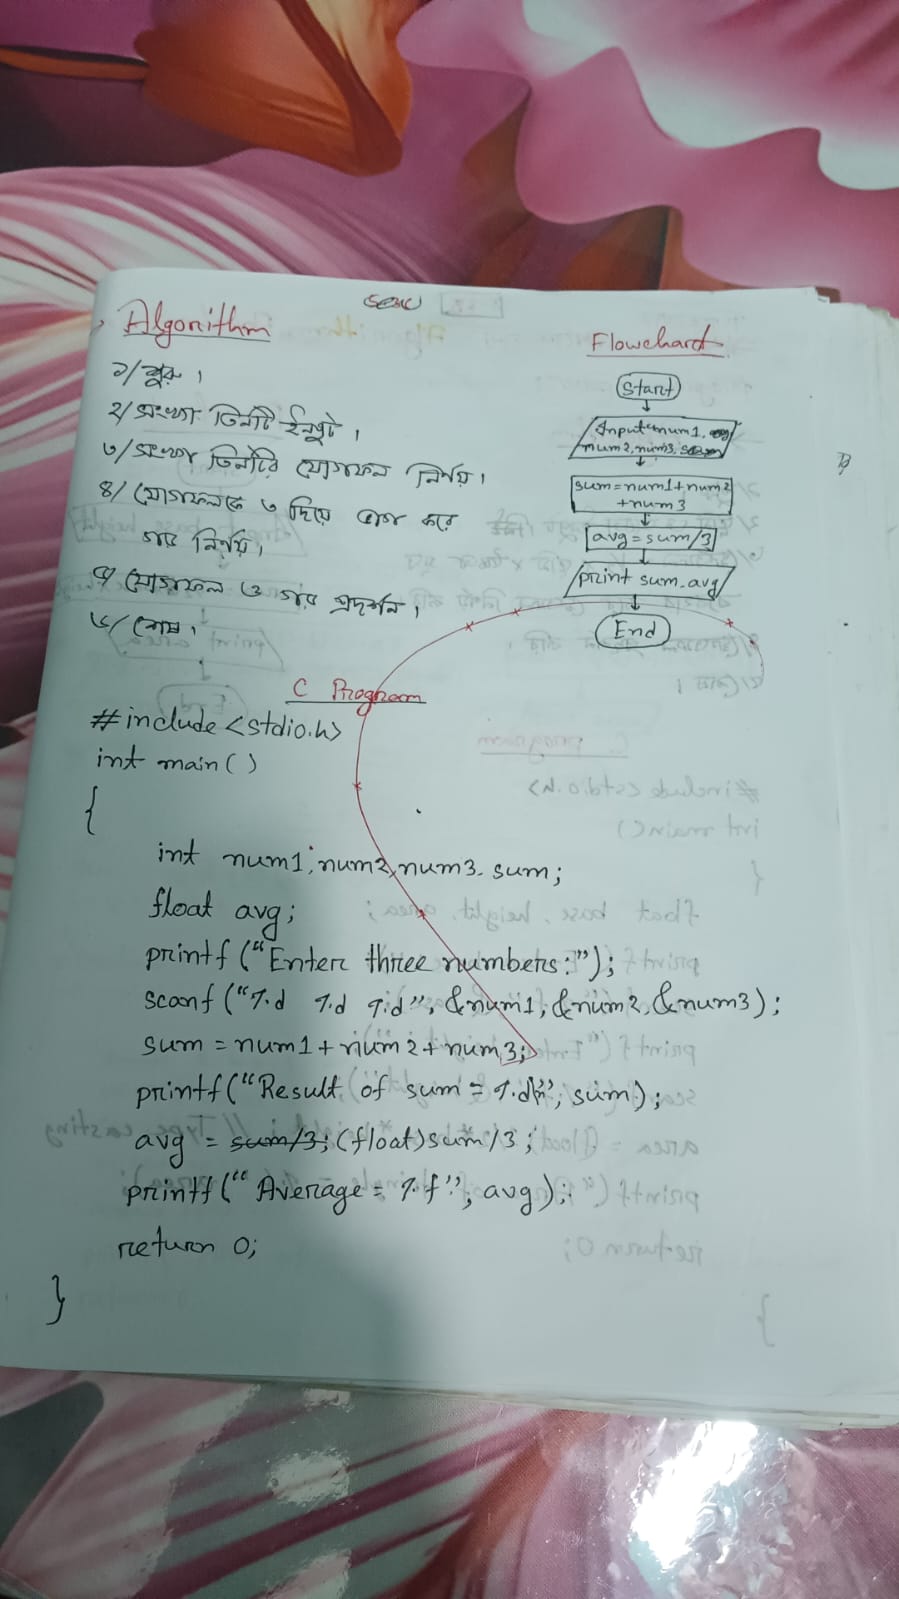 Algorithm
১/ শুরু ।
২/ সংখ্যা তিনটি ইনপুট ।
৩/ সংখ্যা তিনটির যোগফল নির্ণয় ।
৪/ যোগফলকে ৩ দিয়ে ভাগ করে
গড় নির্ণয় ।
৫/ যোগফল ও গড় প্রদর্শন ।
৬/ শেষ ।
Flowchard
Start
Input num1,
num2, num3,
sum=num1+num2
+num3
avg=sum/3
print sum. avg
End
C Program
#include <stdio.h>
int main()
{
int num1, num2, num3. sum;
float avg;
printf ("Enter three numbers:");
scanf ("%d %d %d", &num1, &num2, &num3);
sum = num1 + num2 + num3;
printf("Result of sum = %d\n", sum);
avg = sum/3; (float)sum/3;
printf ("Average = %f", avg);
return 0;
}